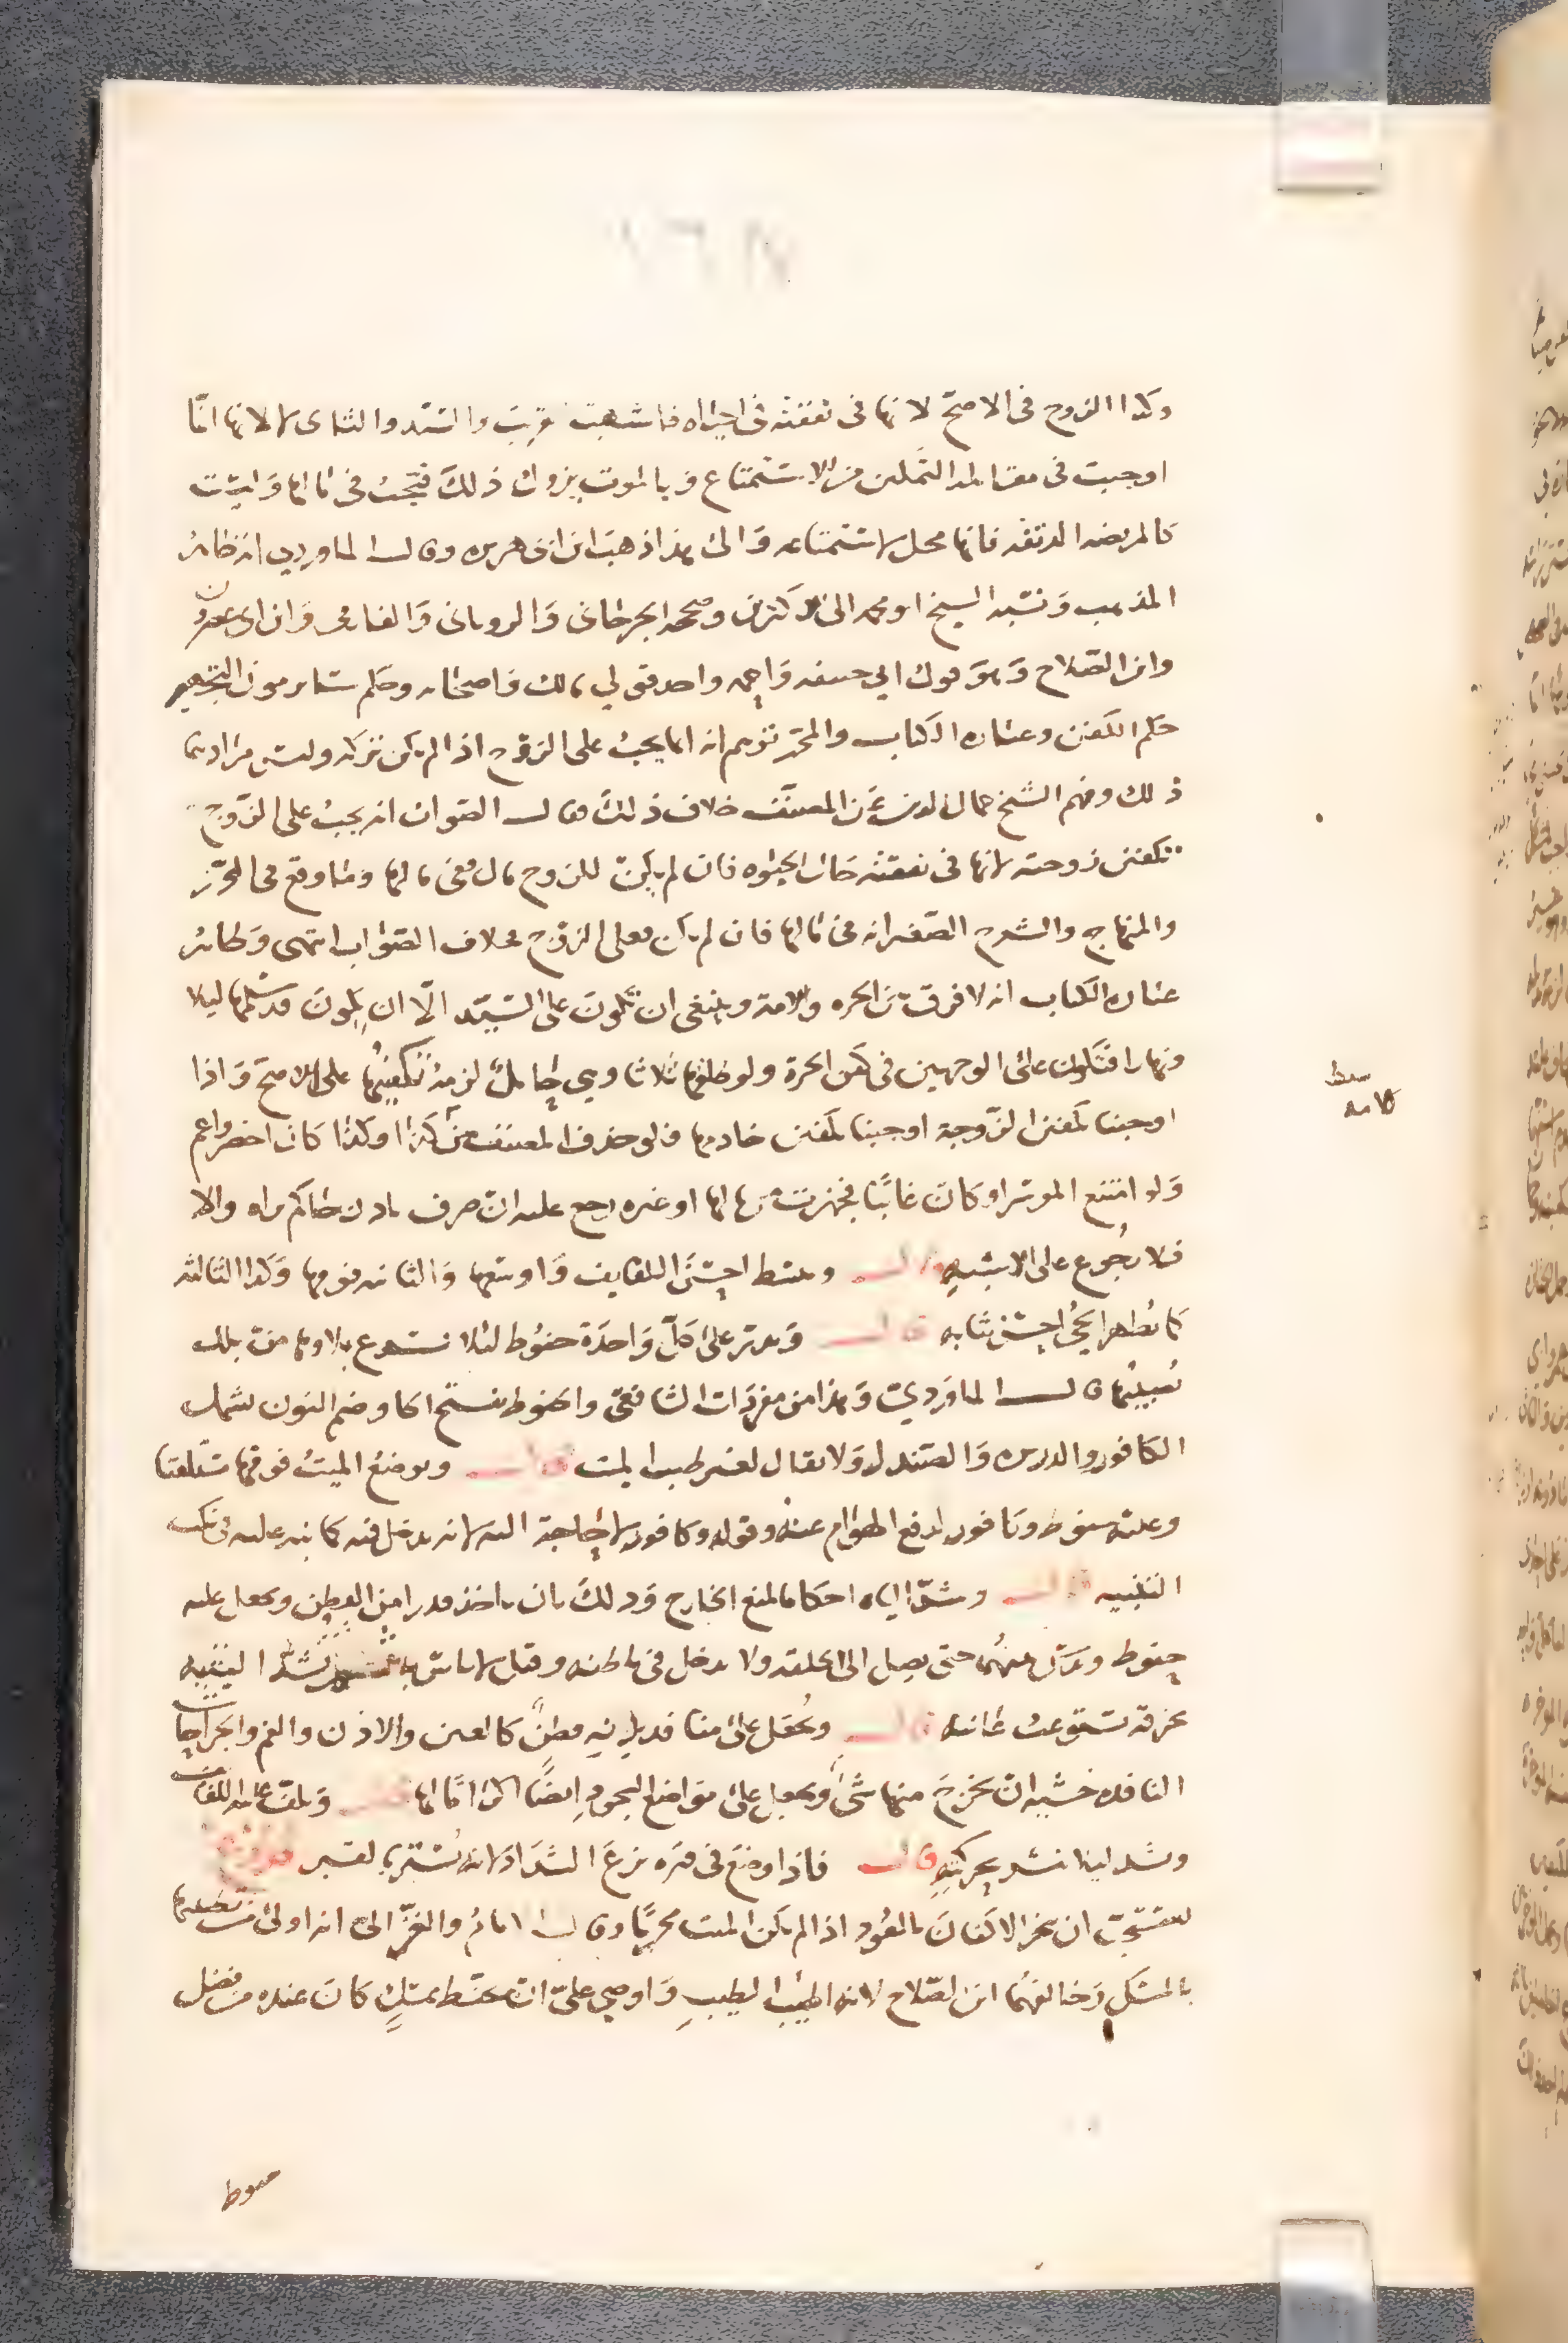 وكذا الزوج في الاصح لانها في نفقته في الحياة فاشبهت قريب والسيد والثاني لا لانها انما
اوجبت في مقابلة التمكين من الاستمتاع وبالموت يزول ذلك فتجب في مالها وليست
كالمريضة الدنفه فانها محل لاستمتاعه والى هذا ذهب ابن ابي هريره وقال الماوردي انه ظاهر
المذهب ونسبه الشيخ ابو محمد الى الاكثرين وصححه الجرجاني والروياني والفارقي وابن ابي عصرون
وابن الصلاح وهو قول ابي حنيفه واحمد واحد قولي مالك واصحابه وحكم سائر مون التجهيز
حكم الكفن وعباره الكتاب والمحرر توهم انه انما يجب على الزوج اذا لم يكن تركه وليس مرادهما
ذلك وفهم الشيخ جمال الدين عن المصنف خلاف ذلك فقال الصواب انه يجب على الزوج
تكفين زوجته لانها في نفقته حال الحيوه فان لم يكن للزوج مال ففي مالها وما وقع في المحرر
والمنهاج والشرح الصغير انه في مالها فان لم يكن فعلى الزوج خلاف الصواب انتهى وظاهر
عباره الكتاب انه لا فرق بين الحره والامة وينبغي ان تكون على السيد الا ان يكون قد سلمها ليلا
ونهارا فتكون على الوجهين في كفن الحرة ولو طلقها ثلاثا وهي حامل لزمه تكفينها على الاصح واذا
اوجبنا تكفين الزوجة اوجبنا تكفين خادمها فلو حذف المصنف من كذا وكذا كان اخصر واعم
ولو امتنع الموسر او كان غائبا فجهزت من مالها او غيره رجع عليه ان صرف باذن حاكم يراه والا
فلا رجوع على الاشبه قال ويبسط احسن اللفايف واوسعها والثانيه فوقها وكذا الثالثه
كما يظهر الحي احسن ثيابه قال ويذر على كل واحدة حنوط لئلا يسرع بلاوها من بلل
يصيبها قال الماوردي وهذا من مفردات الشافعي والحنوط بفتح الحا وضم النون يشمل
الكافور والذريره والصندل ولا يقال لغير طيب الميت قال ويوضع الميت فوقها مستلقيا
وعليه حنوط وكافور لدفع الهوام عنه وقوله وكافور لا حاجة اليه لانه يدخل فيه كما نبه عليه في نكت
التنبيه قال وتشد الياه احكاما لمنع الخارج وذلك بان ياخذ قدرا من القطن ويجعل عليه
حنوط ويدس بينهما حتى يصل الى الحلقه ولا يدخل في باطنه وقيل لا باس به يشد اليتيه
بخرقه تستوعب عانته قال ويجعل على منافذ بدنه قطن كالعين والاذن والفم والجراحات
النافذه خشيه ان يخرج منها شي ويجعل على مواضع السجود ايضا اكراما لها قال وتلف عليه اللفايف
وتشد لئلا تنتشر بحركته قال فاذا وضع في قبره نزع الشداد لانه يشتري لقبر
يستحب ان تبخر الاكفان بالعود اذا لم يكن الميت محرما وقال الامام والغزالي انه اولى من تطييبها
بالمسك وخالفهما ابن الصلاح لانه اطيب الطيب واوصى علي ان يحنط بمسك كان عنده من فضل
حنوط